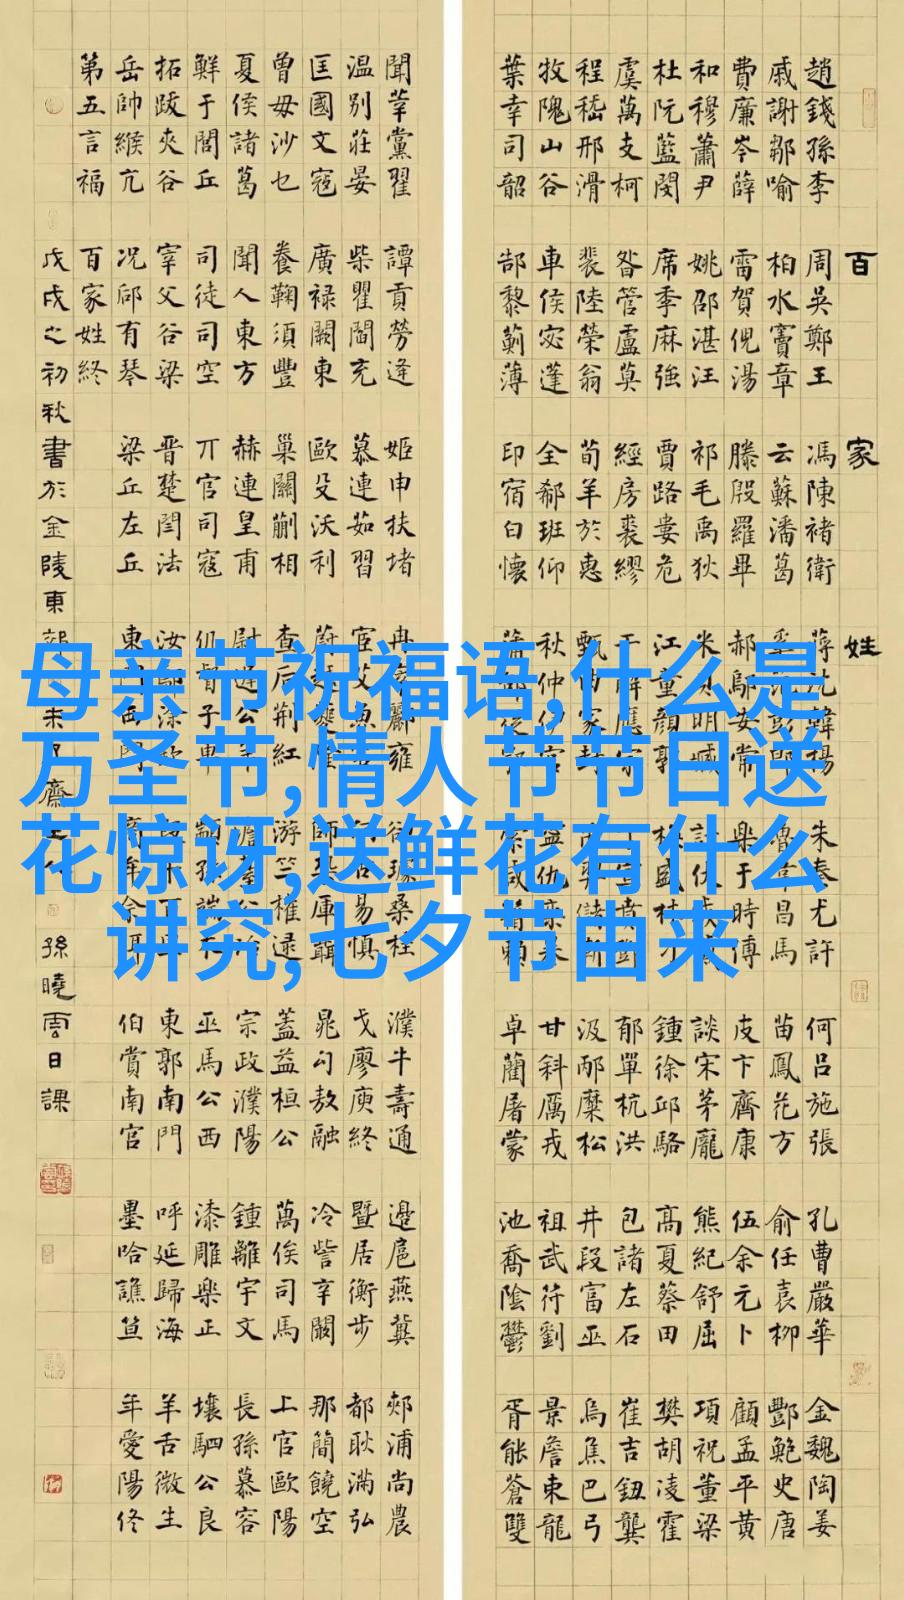 百家姓
趙錢孫李 周吳鄭王 馮陳褚衛 蔣沈韓楊 朱秦尤許 何呂施張 孔曹嚴華 金魏陶姜
戚謝鄒喻 柏水竇章 云蘇潘葛 奚范彭郎 魯韋昌馬 苗鳳花方 俞任袁柳 酆鮑史唐
費廉岑薛 雷賀倪湯 滕殷羅畢 郝鄔安常 樂于時傅 皮卞齊康 伍余元卜 顧孟平黃
和穆蕭尹 姚邵湛汪 祁毛禹狄 米貝明臧 計伏成戴 談宋茅龐 熊紀舒屈 項祝董梁
杜阮藍閔 席季麻強 賈路婁危 江童顏郭 梅盛林刁 鍾徐邱駱 高夏蔡田 樊胡凌霍
虞萬支柯 昝管盧莫 經房裘繆 干解應宗 丁宣賁鄧 郁單杭洪 包諸左石 崔吉鈕龔
程嵇邢滑 裴陸榮翁 荀羊於惠 甄曲家封 芮羿儲靳 汲邴糜松 井段富巫 烏焦巴弓
牧隗山谷 車侯宓蓬 全郗班仰 秋仲伊宮 仇欒暴 甘斜厲戎 祖武符劉 景詹束龍
葉幸司韶 郜黎薊薄 印宿白懷 蒲邰從鄂 索咸籍賴 卓藺屠蒙 池喬陰鬱 胥能蒼雙
聞莘黨翟 譚貢勞逄 姬申扶堵 冉宰酈雍 郤璩桑桂 濮牛壽通 邊扈燕冀 郟浦尚農
温別莊晏 柴瞿閻充 慕連茹習 宦艾魚容 向古易慎 戈廖庾終 暨居衡步 都耿滿弘
匡國文寇 廣禄闕東 歐殳沃利 蔚越夔隆 師鞏厙聶 晁勾敖融 冷訾辛闞 那簡饒空
曾毋沙乜 養鞠須豐 巢關蒯相 查后荆紅 游竺權逯 蓋益桓公 萬俟司馬 上官歐陽
夏侯諸葛 聞人東方 赫連皇甫 尉遲公羊 澹臺公冶 宗政濮陽 鍾離宇文 長孫慕容
鮮于閭丘 司徒司空 丌官司寇 仉督子車 顓孫端木 巫馬公西 漆雕樂正 壤駟公良
拓跋夾谷 宰父谷梁 晋楚閆法 汝鄢涂欽 段干百里 東郭南門 呼延歸海 羊舌微生
岳帥緱亢 况郈有琴 梁丘左丘 東門西門 商牟佘佴 伯賞南宮 墨哈譙笪 年愛陽佟
第五言福 百家姓終
戊戌之初秋書於金陵東郊 孫曉雲日課
母亲节祝福语,什么是
万圣节,情人节节日送
花惊讶,送鲜花有什么
讲究,七夕节由来